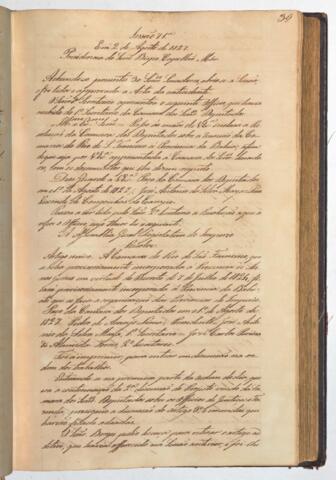 39
Sessão 75ª
Em 2 de Agosto de 1827.
Presidencia do Senr. Bispo Capellão Mór.
Achando-se presentes 30 Senrs. Senadores, abrio-se a Sessão,
e foi lida e approvada a Acta da antecedente.
O Senr. Secretario apresentou o seguinte Officio, que havia
recebido do 1º Secretario da Camara dos Senrs. Deputados.
da Camara dos Deputados sobre a
marca do Rio de S. Francisco a Provincia da Bahia, a fim
de que seja por V. Exª apresentada a Camara dos
do, com os documentos que
Deos Guarde a V. Exª Paço da Camara dos Deputados
em 1º de Agosto de 1827. José Antonio da Silva Maia. Senr.
Visconde de Congonhas do Campo.
o Officio, cujo theor he o seguinte.
A Assembléa Geral Legislativa do Imperio
Resolve.
Artigo unico. A Comarca do Rio de São Francisco, que
se acha provisoriamente incorporada a Provincia de Mi-
nas Geraes em virtude do Decreto de 7 de Julho de 1824,
será provisoriamente incorporada á Provincia da Bahia
até que se faça a organisação das Provincias do Imperio.
Paço da Camara dos Deputados em 1º de Agosto de
1827. Pedro de Araujo Lima, Presidente. José Anto-
nio da Silva Maia, 1º Secretario. José Carlos Pereira
de Almeida Torres, 2º Secretario.
Foi a imprimir, para entrar em discussão na or-
dem dos trabalhos.
Entrando-se na primeira parte da ordem do dia, que
era a continuação da 2ª discussão do Projecto vindo da Ca-
mara dos Senrs. Deputados sobre os Officios de Justiça e Fa-
zenda, principiou a discussão do artigo 2º, e emendas que
havião ficado adiadas.
O Senr. Borges pedio licença para retirar o artigo ad-
ditivo, que havia offerecido na Sessão anterior, e foi-lhe